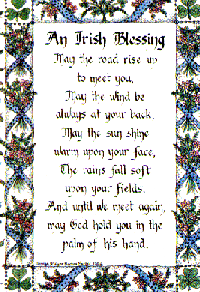 An Irish Blessing
May the road rise up
to meet you,
May the wind be
always at your back.
May the sun shine
warm upon your face,
The rains fall soft
upon your fields.
And until we meet again,
may God hold you in the
palm of his hand.